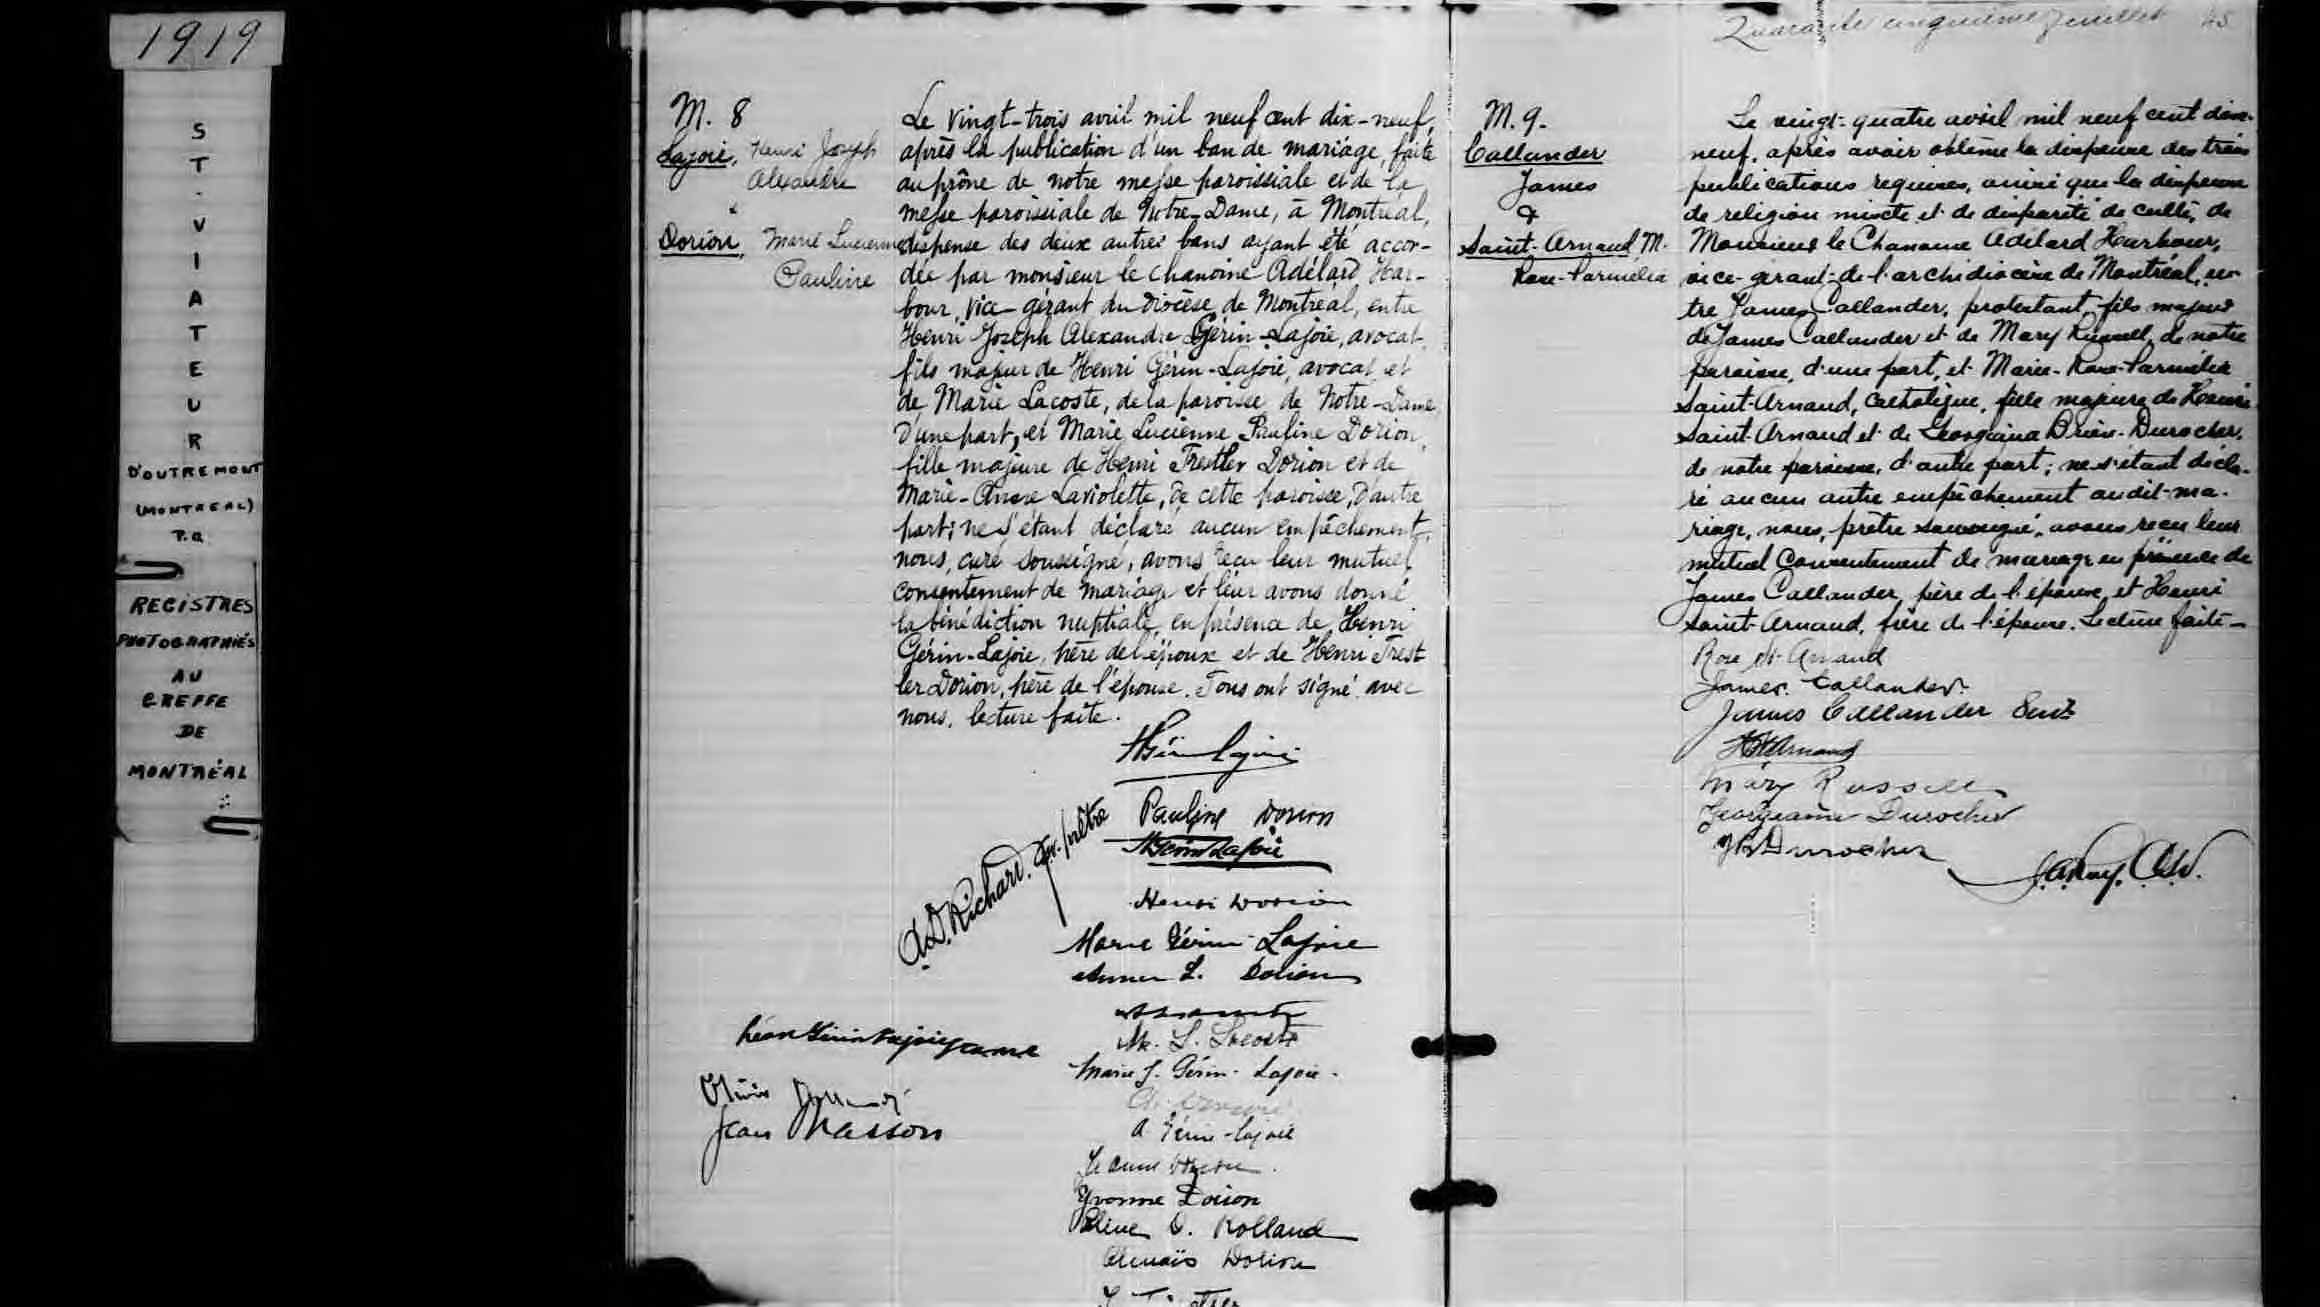 1919
ST-VIATEUR
D'OUTREMONT
(MONTREAL)
P.Q.
REGISTRES
PHOTOGRAPHIÉS
AU
GREFFE
DE
MONTRÉAL
M. 8
Lajoie, Henri Joseph
Alexandre
&
Dorion, Marie Lucienne
Pauline
Le vingt-trois avril mil neuf cent dix-neuf,
après la publication d'un ban de mariage, faite
au prône de notre messe paroissiale et de la
messe paroissiale de Notre-Dame, à Montréal,
dispense des deux autres bans ayant été accor-
dée par monsieur le chanoine Adélard Har-
bour, vice-gérant du Diocèse de Montréal, entre
Henri Joseph Alexandre Gérin-Lajoie, avocat,
fils majeur de Henri Gérin-Lajoie, avocat et
de Marie Lacoste, de la paroisse de Notre-Dame
d'une part, et Marie Lucienne Pauline Dorion,
fille majeure de Henri Trestler Dorion et de
Marie-Anne Laviolette, de cette paroisse, d'autre
part; ne s'étant déclaré aucun empêchement,
nous, curé soussigné, avons reçu leur mutuel
consentement de mariage et leur avons donné
la bénédiction nuptiale, en présence de Henri
Gérin-Lajoie, père de l'époux et de Henri Trest
ler Dorion, père de l'épouse. Tous ont signé avec
nous, lecture faite.
Pauline Dorion
HGérin Lajoie
A.D. Richard. ptre
Henri Dorion
Marie Gérin-Lajoie
Anna L. Dorion
M. L. Lacoste
Marie J. Gérin-Lajoie.
A Gérin-Lajoie
Jeanne Dorion
Yvonne Dorion
D. Rolland
Dorion
Jean Masson
Quarante cinquième feuillet 45
M. 9.
Callander
James
&
Saint-Arnaud, M.
Rose-Parmelia
Le vingt-quatre avril mil neuf cent dix-
neuf, après avoir obtenu la dispense des trois
publications requises, ainsi que la dispense
de religion mixte et de disparité de culte, de
Monsieur le Chanoine Adélard Harbour,
vice-gérant de l'archidiocèse de Montréal, en-
tre James Callander, protestant, fils majeur
de James Callander et de Mary Russell, de notre
paroisse, d'une part, et Marie-Rose-Parmélia
Saint-Arnaud, catholique, fille majeure de Henri
Saint-Arnaud et de Georgiana Brien-Durocher,
de notre paroisse, d'autre part; ne s'étant décla-
ré aucun autre empêchement audit ma-
riage, nous, prêtre soussigné, avons reçu leur
mutuel consentement de mariage en présence de
James Callander, père de l'époux, et Henri
Saint-Arnaud, frère de l'épouse. Lecture faite-
Rose St-Arnaud
James Callander.
James Callander Senr
H St Arnaud
Mary Russell
Georgeanna Durocher
Durocher